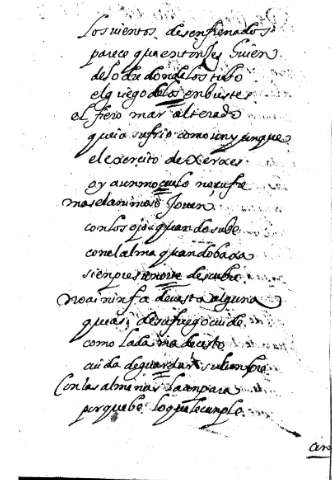 Los vientos desenfrenados
parece que entonses huien
del odre donde los tubo
el griego de los enbustes
el fiero mar alterado
que ia sufrio como yunque
el exercito de Xerxes
oy a un moçuelo no sufre
mas el animoso Joven
con los ojos quando sube
con el alma quando baxa
siempre su norte descubre
No ai ninfa de vesta alguna
que asi de su fuego cuide
como la dama de sesto
cuida de guardar su lumbre
Con las almenas la anpara
porque be lo que le cumple